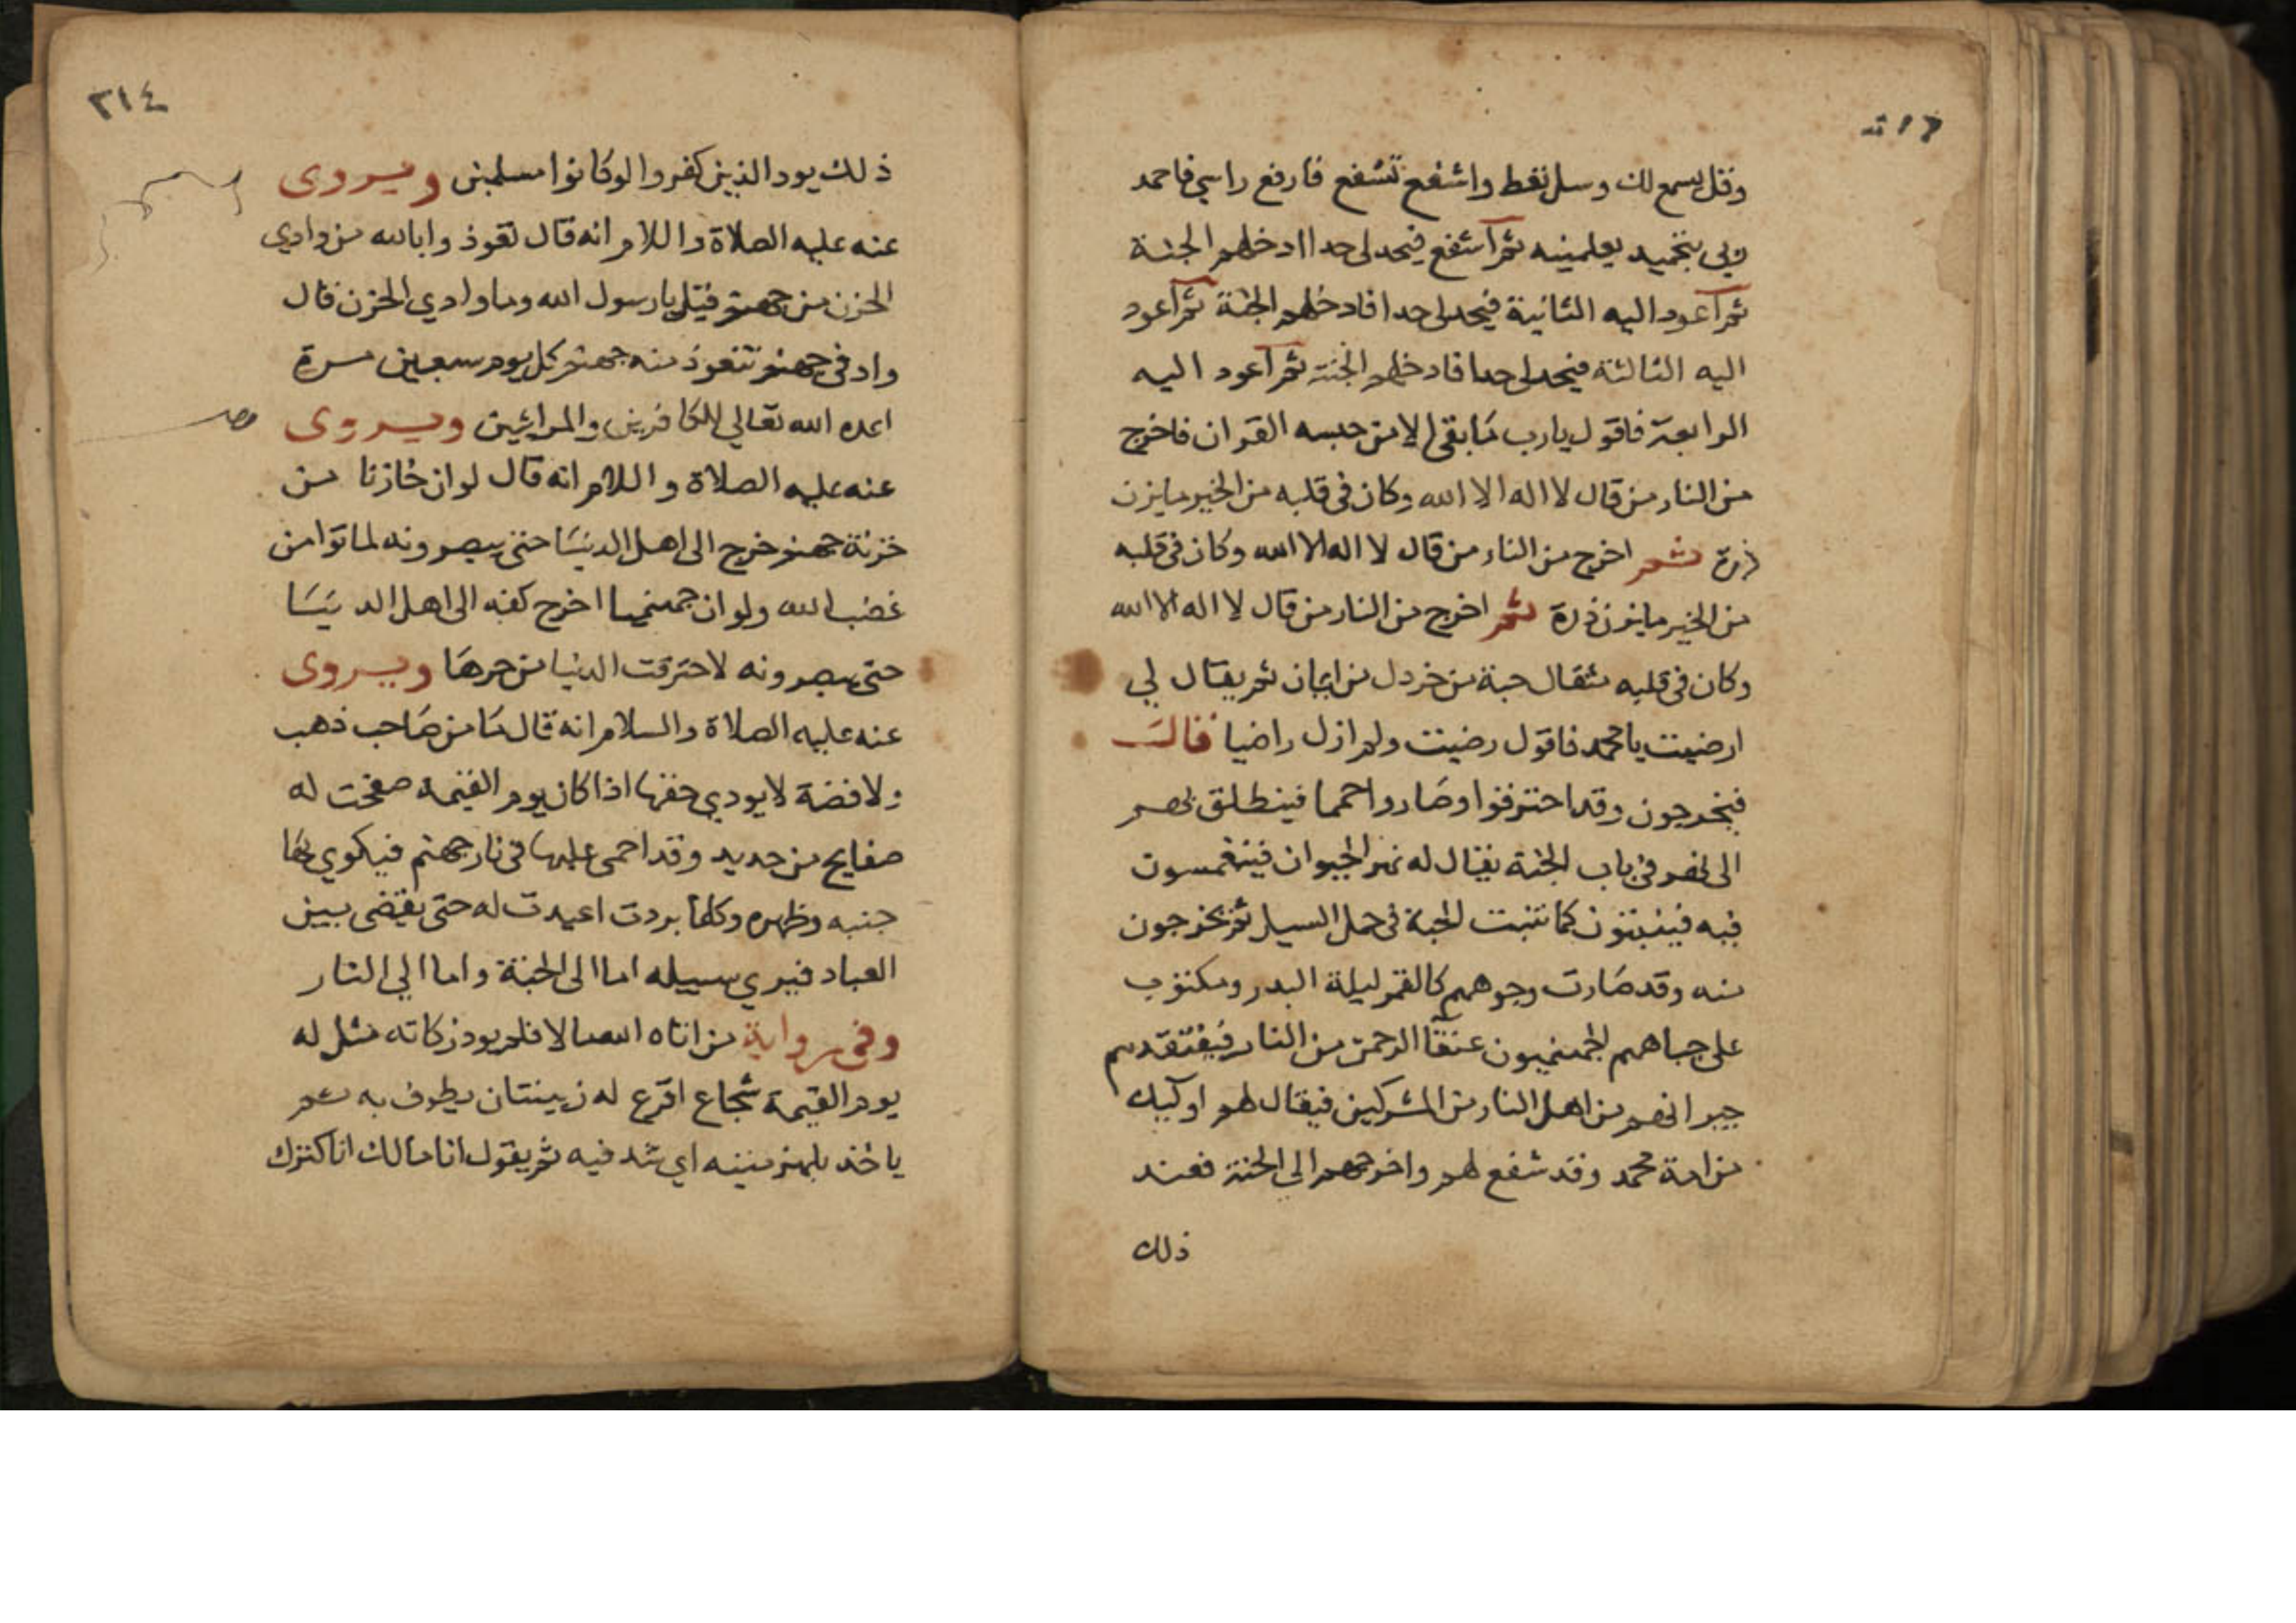 وقل يسمع لك وسل تعط واشفع تشفع فارفع راسي فاحمد
ربي بتحميد يعلمنيه ثم اشفع فيحد لي حدا ادخلهم الجنة
ثم اعود اليه الثانية فيحد لي حدا فادخلهم الجنة ثم اعود
اليه الثالثة فيحد لي حدا فادخلهم الجنة ثم اعود اليه
الرابعة فاقول يارب ما بقي الا من حبسه القران فاخرج
من النار من قال لا اله الا الله وكان في قلبه من الخير ما يزن
ذرة ثم اخرج من النار من قال لا اله الا الله وكان في قلبه
من الخير ما يزن ذرة ثم اخرج من النار من قال لا اله الا الله
وكان في قلبه مثقال حبة من خردل من ايمان ثم يقال لي
ارضيت يا محمد فاقول رضيت ولم ازل راضيا قال
فيخرجون وقد احترقوا وصاروا حمما فينطلق بهم
الى نهر في باب الجنة يقال له نهر الحيوان فينغمسون
فيه فينبتون كما تنبت الحبة في حمل السيل ثم يخرجون
منه وقد صارت وجوههم كالقمر ليلة البدر ومكتوب
على جباههم الجهنميون عتقا الرحمن من النار فيفتقدهم
جيرانهم من اهل النار من المشركين فيقال لهم اوليك
من امة محمد وقد شفع لهم واخرجهم الى الجنة فعند
ذلك
٢١٤
ذلك يود الذين كفروا لو كانوا مسلمين ويروى
عنه عليه الصلاة واللام انه قال تعوذوا بالله من وادي
الحزن من جهنم فقيل يا رسول الله وما وادي الحزن قال
واد في جهنم تتعوذ منه جهنم كل يوم سبعين مرة
اعده الله تعالى للكافرين والمرائين ويروى
عنه عليه الصلاة واللام انه قال لو ان خازنا من
خزنة جهنم خرج الى اهل الدنيا حتى يبصرونه لماتوا من
غضب الله ولو ان جهنميا اخرج كفه الى اهل الدنيا
حتى يبصرونه لاحترقت الدنيا من حرها ويروى
عنه عليه الصلاة والسلام انه قال ما من صاحب ذهب
ولا فضة لا يودي حقها اذا كان يوم القيمة صفحت له
صفايح من حديد وقد احمى عليها في نار جهنم فيكوي بها
جنبه وظهره وكلما بردت اعيدت له حتى يقضى بين
العباد فيري سبيله اما الى الجنة واما الي النار
وفي رواية من اتاه الله مالا فلم يود زكاته مثل له
يوم القيمة شجاع اقرع له زبيبتان يطوف به ثم
ياخذ بلهزمتيه اي شدقيه ثم يقول انا مالك انا كنزك